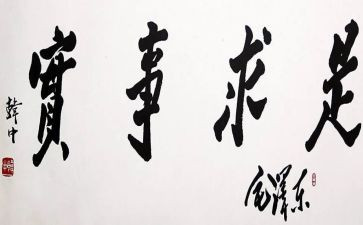 實事求是
毛澤东
韓中